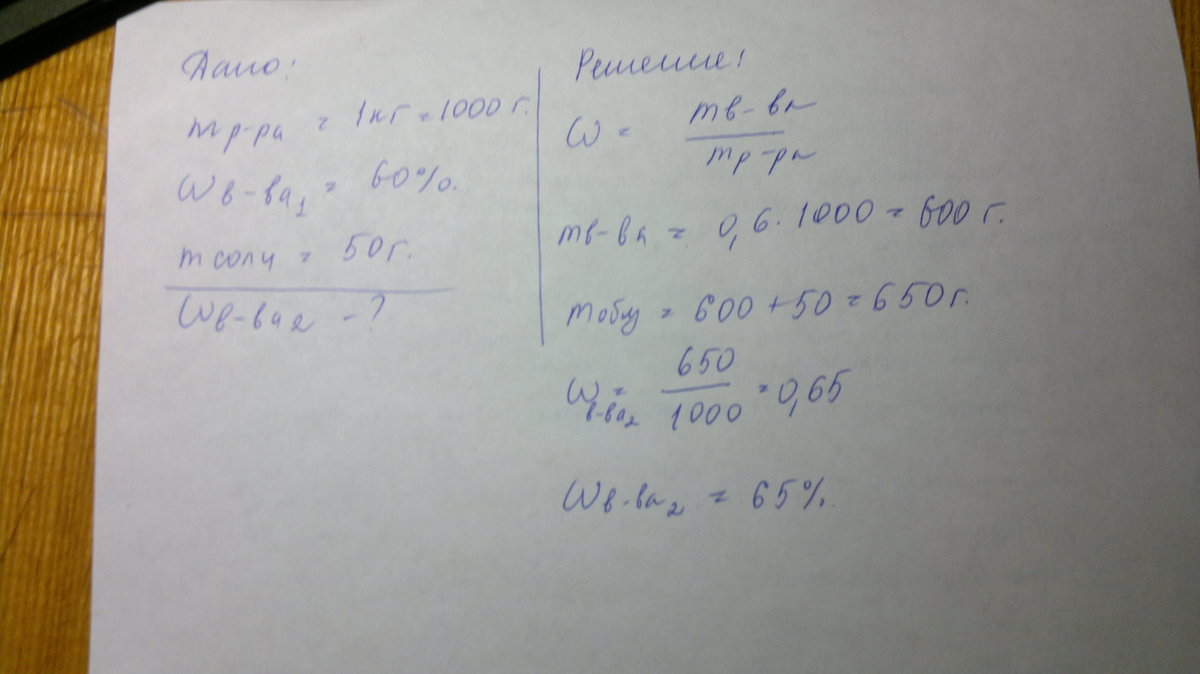 Дано:
m р-ра = 1кг = 1000 г.
ω в-ва₁ = 60%.
m соли = 50г.
ω в-ва₂ - ?
Решение:
ω = m в-ва / m р-ра
m в-ва = 0,6 · 1000 = 600 г.
m общ = 600 + 50 = 650 г.
ω в-ва₂ = 650 / 1000 = 0,65
ω в-ва₂ = 65%.